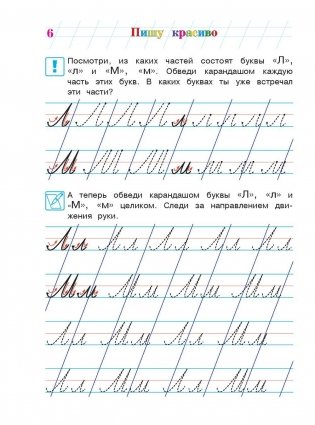 6 Пишу красиво
Посмотри, из каких частей состоят буквы «Л»,
«л» и «М», «м». Обведи карандашом каждую
часть этих букв. В каких буквах ты уже встречал
эти части?
А теперь обведи карандашом буквы «Л», «л» и
«М», «м» целиком. Следи за направлением дви-
жения руки.
Л л Л л Л л Л л Л л
М м М м М м М м
Л л М м Л л М м
Л л М м Л л М м